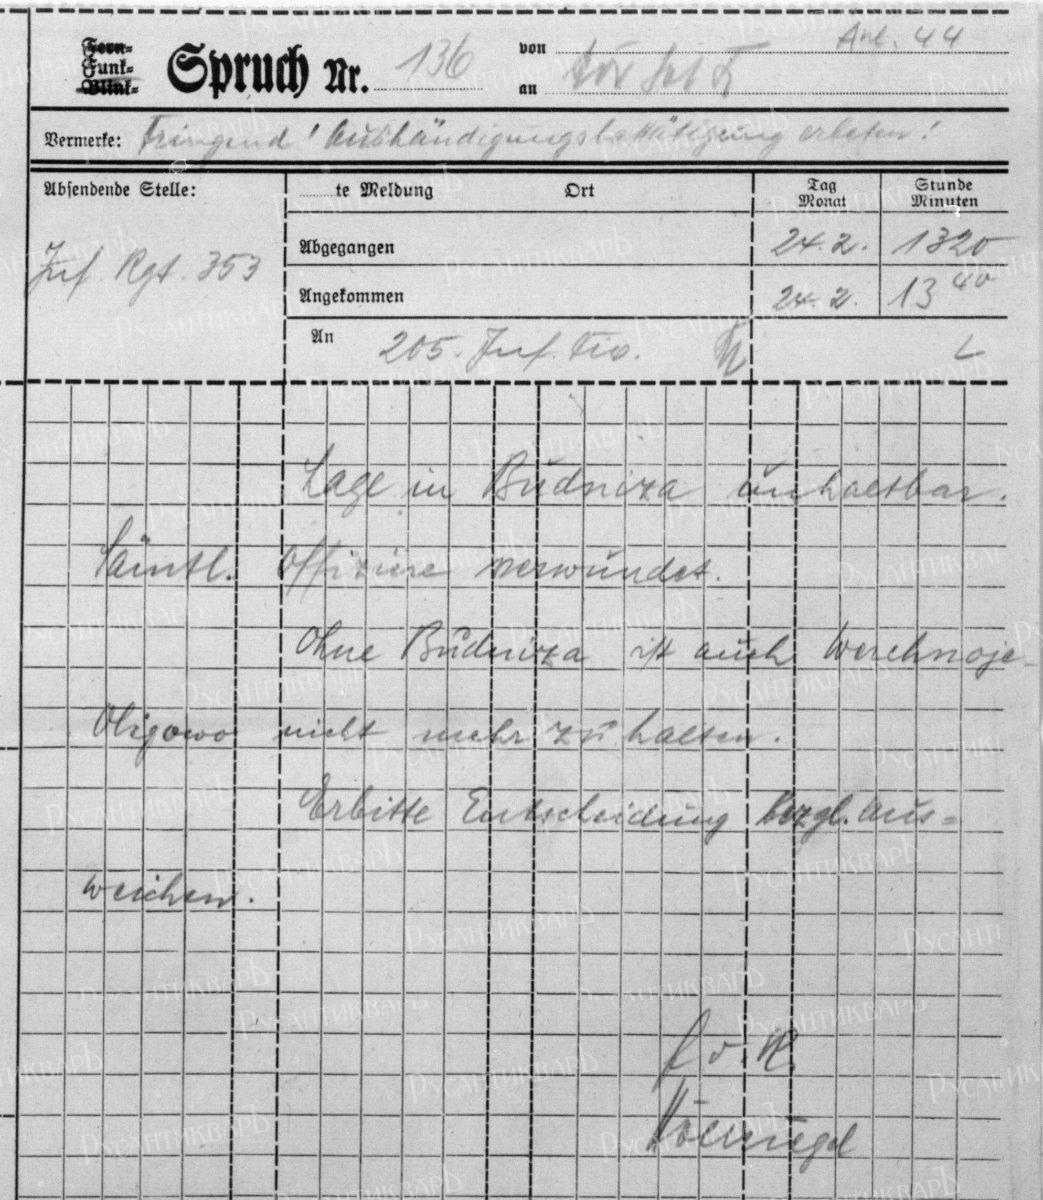 Fern-
Funk-
Blink-
Spruch Nr. 136
von
an
Anl. 44
Vermerke: Dringend! Aushändigungsbestätigung erbeten!
Absendende Stelle:
te Meldung Ort
Tag
Monat
Stunde
Minuten
Inf. Rgt. 353
Abgegangen 24.2. 1320
Angekommen 24.2. 13 40
An 205. Inf. Div.
Lage in Budniza unhaltbar.
Sämtl. Offiziere verwundet.
Ohne Budniza ist auch Werchnoje-
Oligowo nicht mehr zu halten.
Erbitte Entscheidung bezgl. Aus=
weichen.